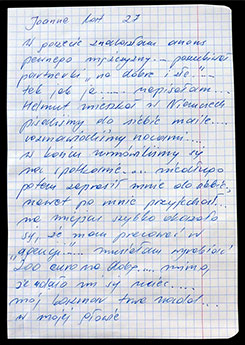 Joanna lat 27
W gazecie znalazłam anons
pewnego mężczyzny... poszukiwał
partnerki "na dobre i złe"...
tak jak ja...... napisałam...
Helmut mieszkał w Niemczech
pisaliśmy do siebie maile...
rozmawialiśmy nocami....
w końcu umówiliśmy się
na spotkanie.... niedługo
potem zaprosił mnie do siebie,
nawet po mnie przyjechał...
na miejscu szybko okazało
się, że mam pracować w
"agencji".... musiałam wyrobić
200 euro na dobę.... mimo,
że udało mi się uciec....
mój koszmar trwa nadal...
w mojej głowie